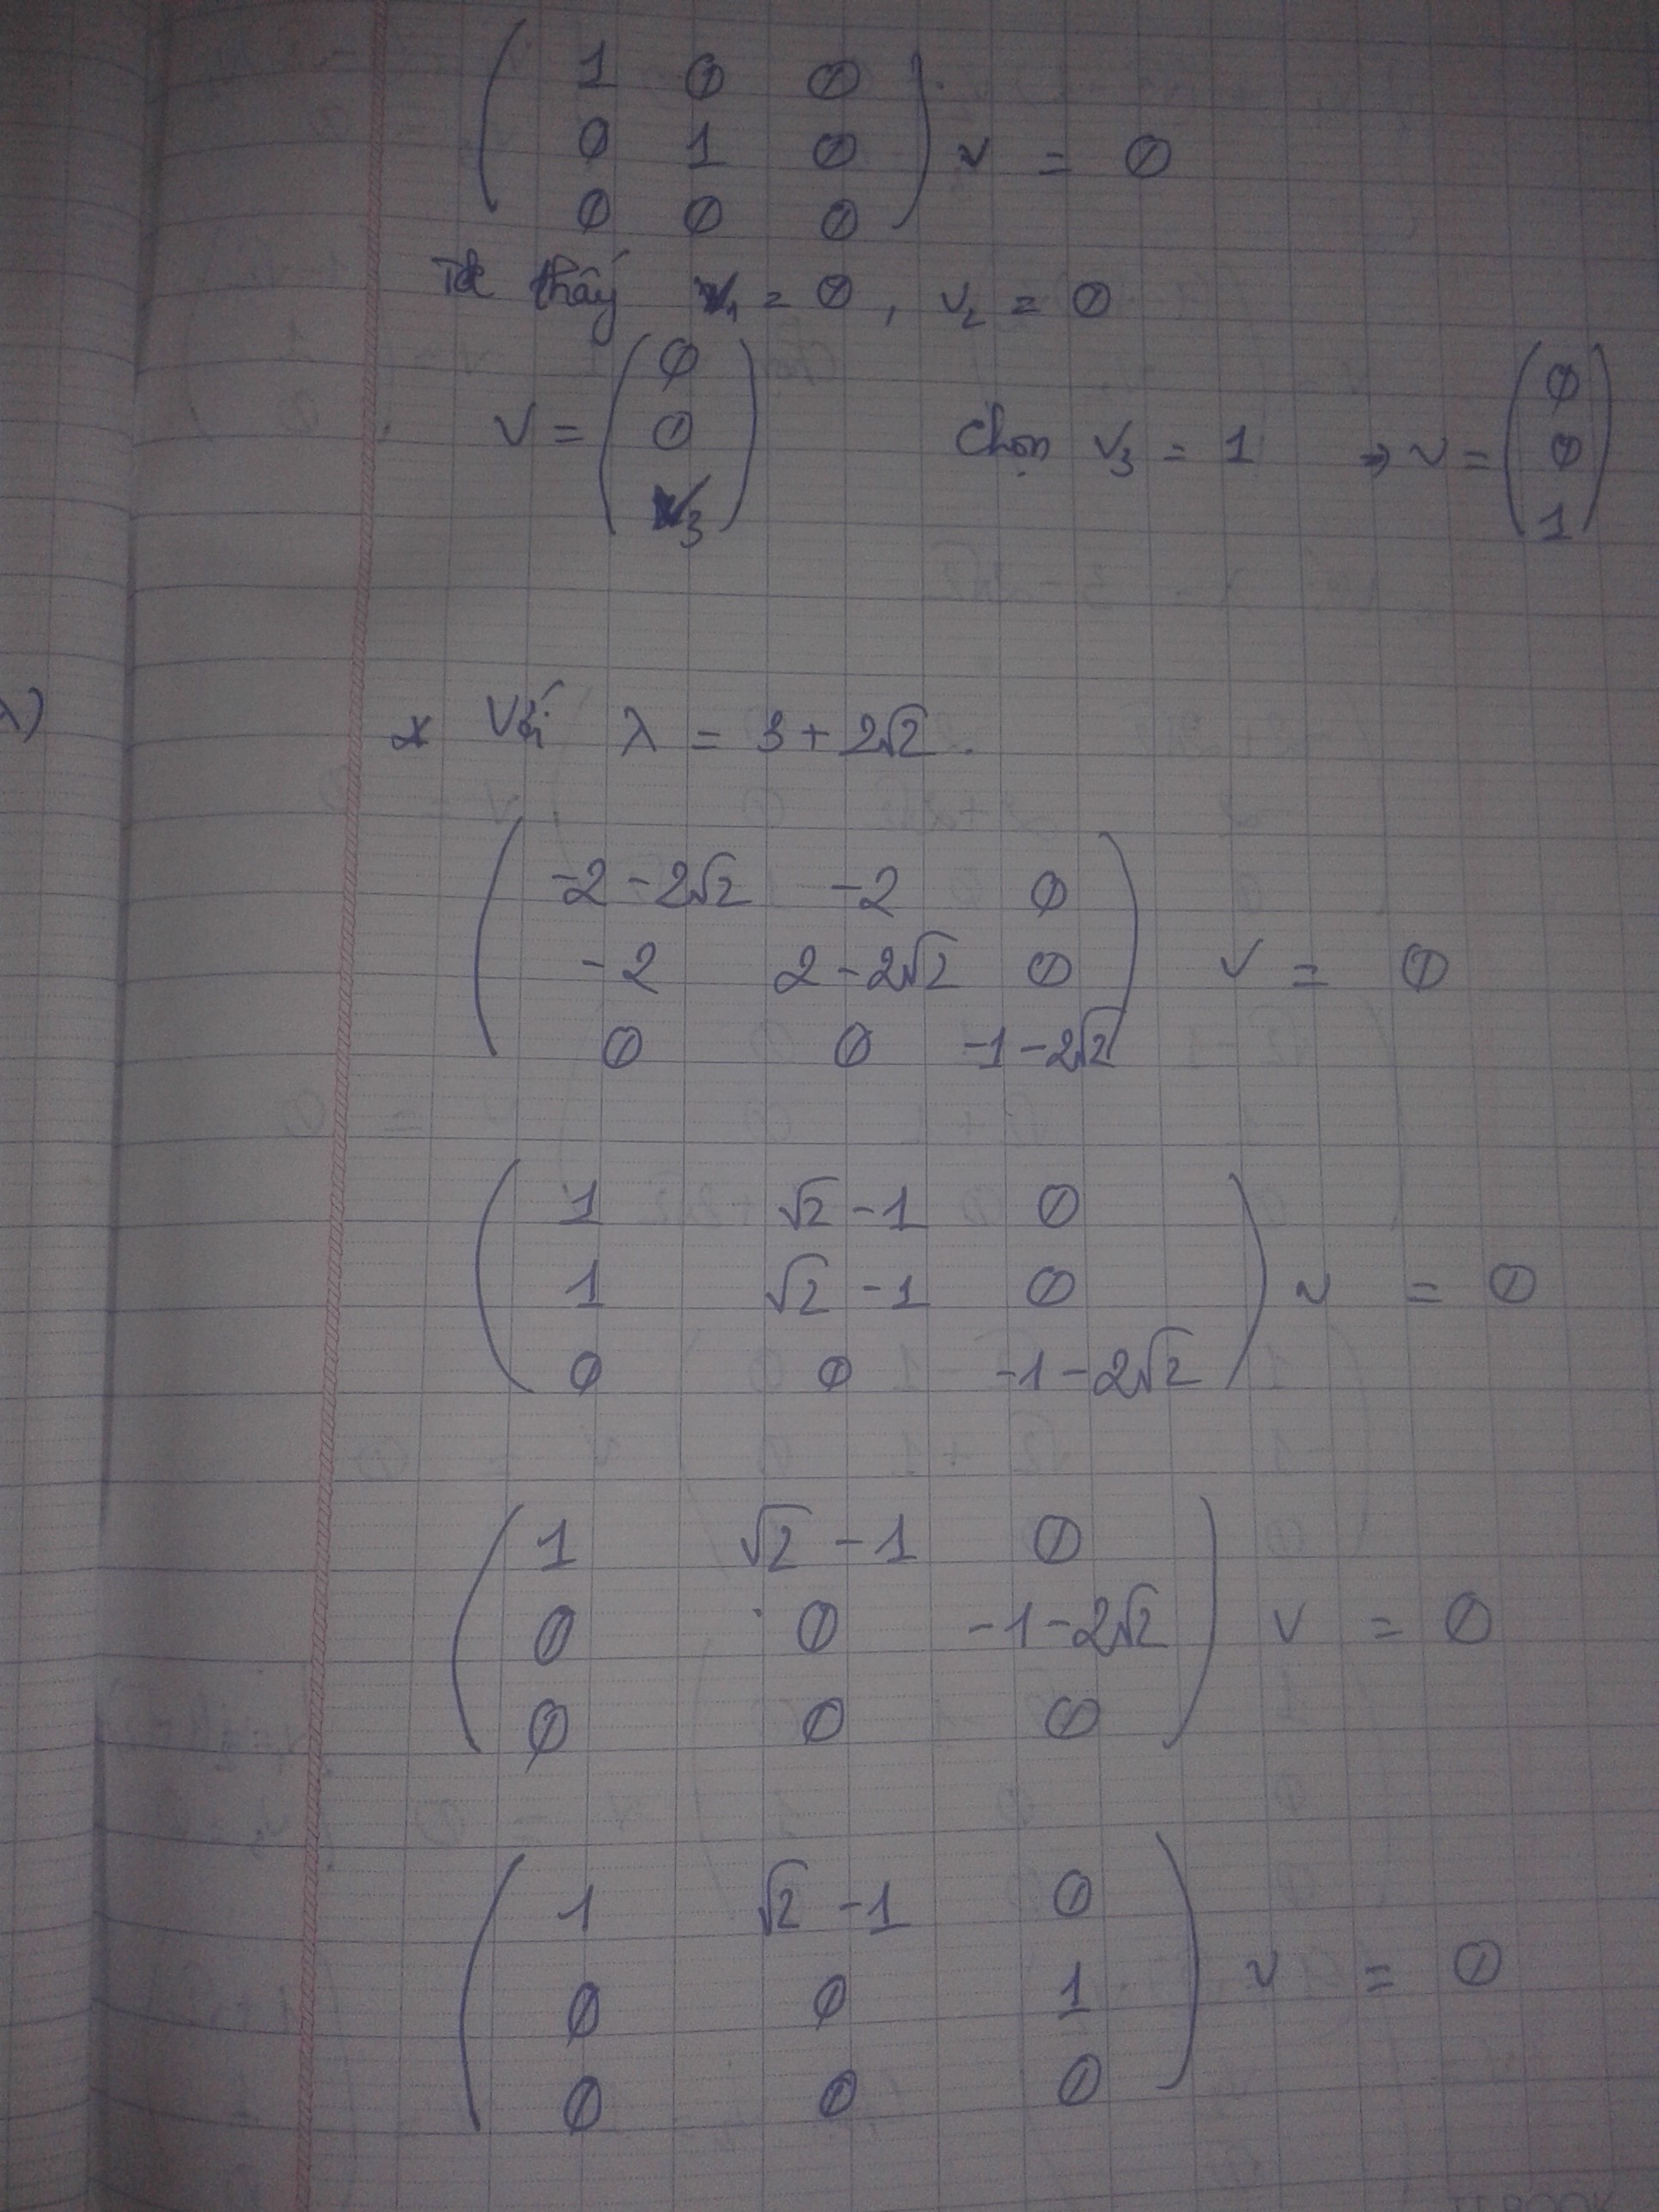 ( 1 0 0
0 1 0
0 0 0 ) v = 0
Ta thấy v₁ = 0 , v₂ = 0
v = ( 0
0
v₃ ) Chọn v₃ = 1 → v = ( 0
0
1 )
λ)
* Với λ = 3 + 2√2 .
( -2 - 2√2 -2 0
-2 2 - 2√2 0
0 0 -1 - 2√2 ) v = 0
( 1 √2 - 1 0
1 √2 - 1 0
0 0 -1 - 2√2 ) v = 0
( 1 √2 - 1 0
0 0 -1 - 2√2
0 0 0 ) v = 0
( 1 √2 - 1 0
0 0 1
0 0 0 ) v = 0